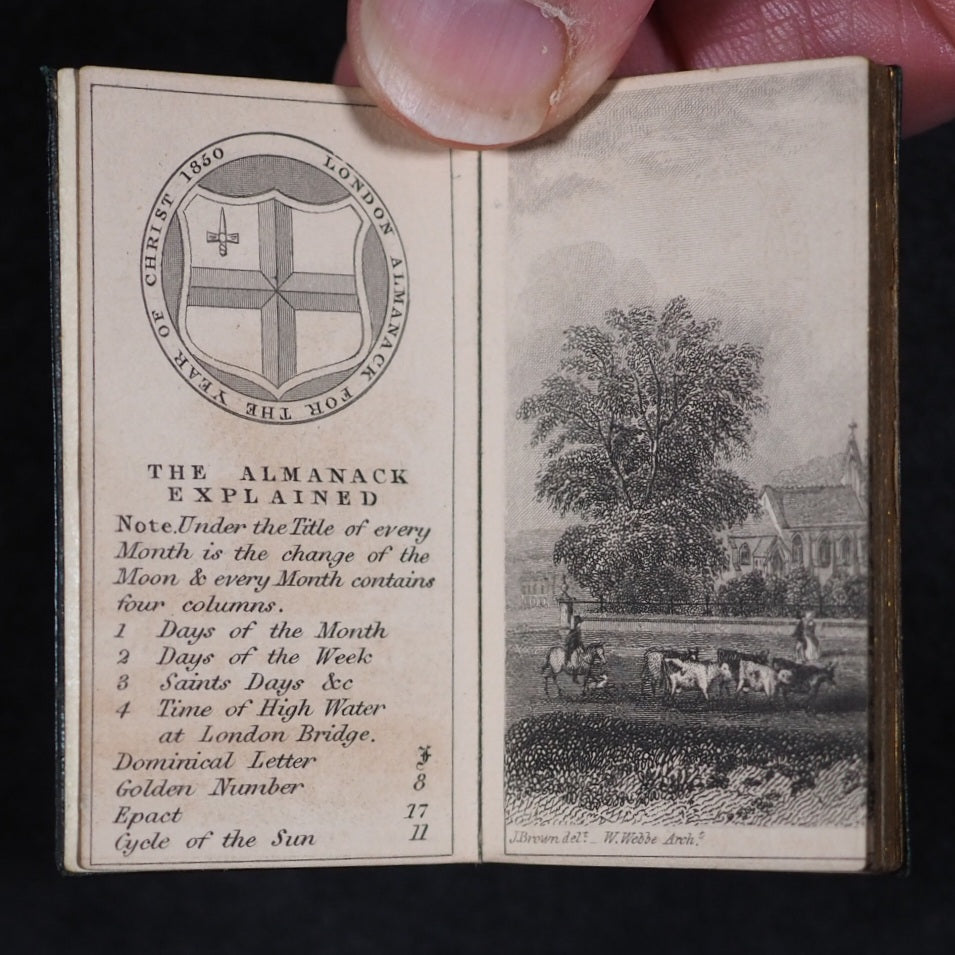 LONDON ALMANACK FOR THE YEAR OF CHRIST 1850
THE ALMANACK
EXPLAINED
Note. Under the Title of every
Month is the change of the
Moon & every Month contains
four columns.
1 Days of the Month
2 Days of the Week
3 Saints Days &c
4 Time of High Water
at London Bridge.
Dominical Letter F
Golden Number 8
Epact 17
Cycle of the Sun 11
J. Brown delt. _ W. Webbe Archt.